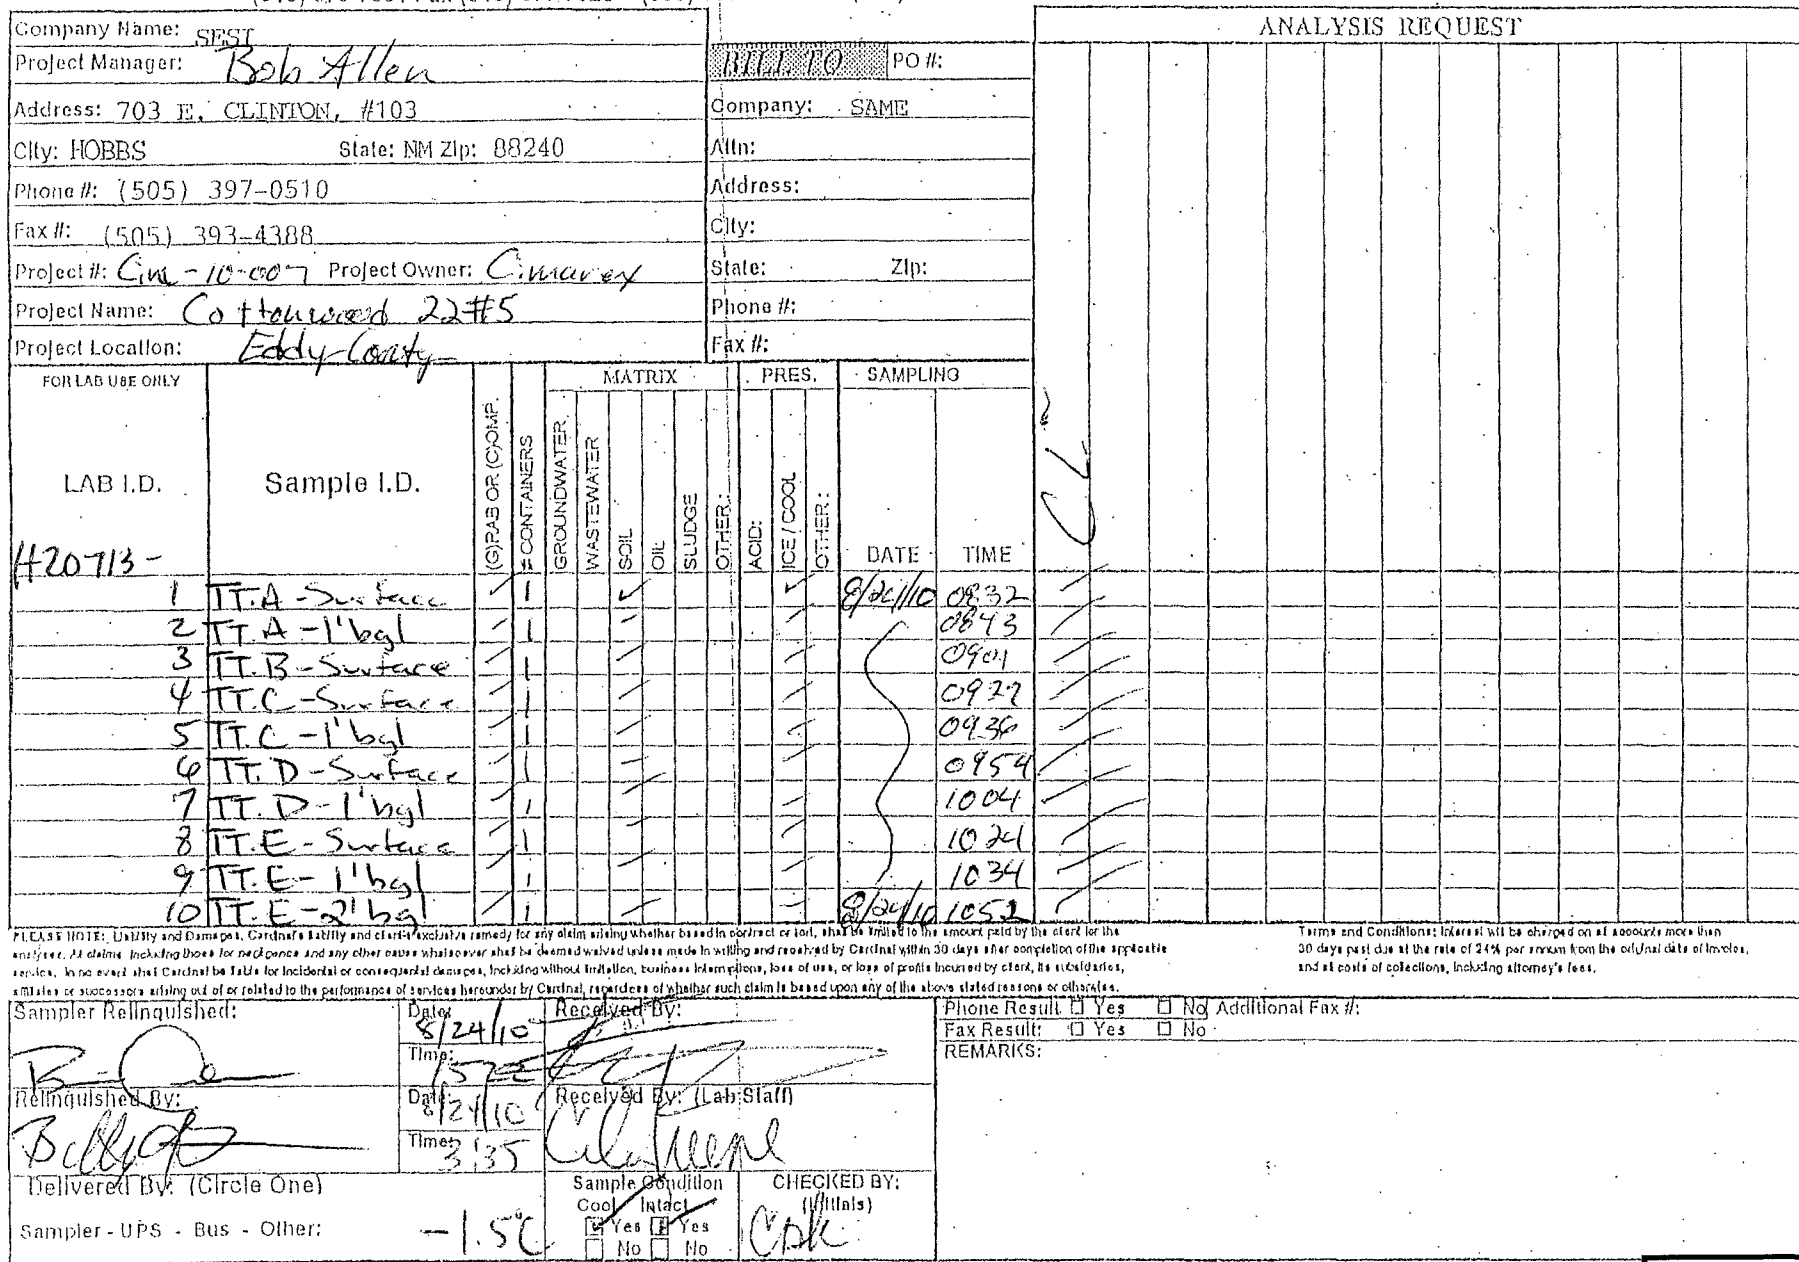 Company Name: SESI
ANALYSIS REQUEST
Project Manager: Bob Allen
BILL TO PO #:
Address: 703 E. CLINTON, #103
Company: SAME
City: HOBBS State: NM Zip: 88240
Attn:
Phone #: (505) 397-0510
Address:
Fax #: (505) 393-4388
City:
Project #: Cim-10-007 Project Owner: Cimarex
State: Zip:
Project Name: Cottonwood 22#5
Phone #:
Project Location: Eddy County
Fax #:
FOR LAB USE ONLY
MATRIX PRES. SAMPLING
LAB I.D. Sample I.D. (G)RAB OR (C)OMP. # CONTAINERS GROUNDWATER WASTEWATER SOIL OIL SLUDGE OTHER: ACID: ICE / COOL OTHER: DATE TIME CL-
H20713-
1 TT.A-Surface 1 8/24/10 0832
2 TT.A-1'bgl 1 0843
3 TT.B-Surface 1 0901
4 TT.C-Surface 1 0922
5 TT.C-1'bgl 1 0936
6 TT.D-Surface 1 0954
7 TT.D-1'bgl 1 1004
8 TT.E-Surface 1 1024
9 TT.E-1'bgl 1 1034
10 TT.E-2'bgl 1 8/24/10 1052
PLEASE NOTE: Liability and Damages. Cardinal's liability and client's exclusive remedy for any claim arising whether based in contract or tort, shall be limited to the amount paid by the client for the
analyses. All claims including those for negligence and any other cause whatsoever shall be deemed waived unless made in writing and received by Cardinal within 30 days after completion of the applicable
service. In no event shall Cardinal be liable for incidental or consequental damages, including without limitation, business interruptions, loss of use, or loss of profits incurred by client, its subsidiaries,
affiliates or successors arising out of or related to the performance of services hereunder by Cardinal, regardless of whether such claim is based upon any of the above stated reasons or otherwise.
Terms and Conditions: Interest will be charged on all accounts more than
30 days past due at the rate of 24% per annum from the original date of invoice,
and all costs of collections, including attorney's fees.
Sampler Relinquished:
Date: 8/24/10
Time:
Received By:
Phone Result Yes No Additional Fax #:
Fax Result: Yes No
REMARKS:
Relinquished By:
Date: 8/24/10
Time: 3:35
Received By: (Lab Staff)
Delivered By: (Circle One)
Sample Condition
Cool Intact
Yes Yes
No No
CHECKED BY:
(Initials)
Sampler - UPS - Bus - Other: -1.5°C